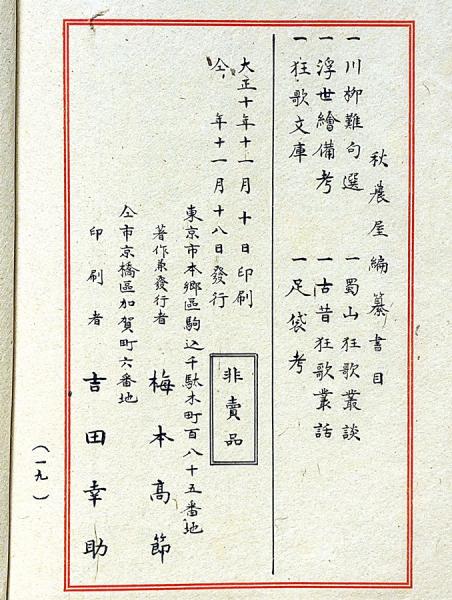 秋農屋編纂書目
一川柳難句選　一蜀山狂歌叢談
一浮世繪備考　一古昔狂歌叢話
一狂歌文庫　一足袋考
大正十年十一月十日印刷
仝　年十一月十八日發行
非賣品
東京市本鄉區駒込千駄木町百八十五番地
著作兼發行者　梅本高節
仝市京橋區加賀町六番地
印刷者　吉田幸助
（一九）